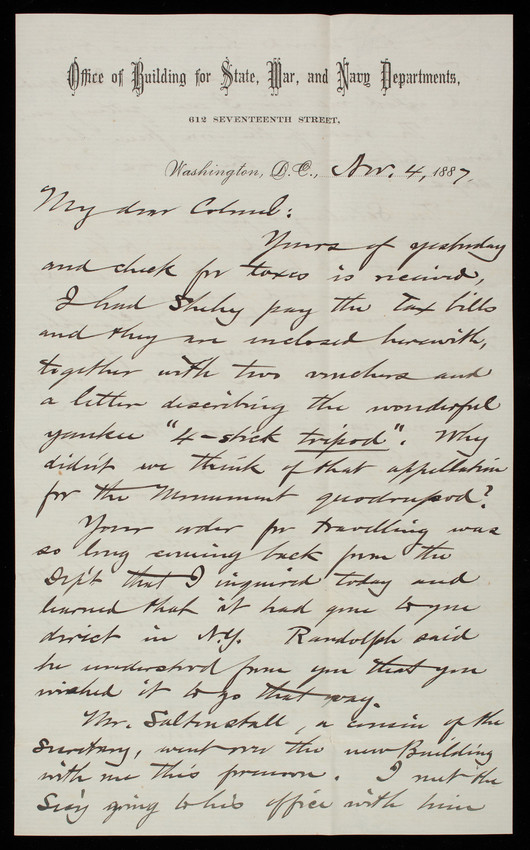 Office of Building for State, War, and Navy Departments,
612 SEVENTEENTH STREET,
Washington, D.C., Nov. 4, 1887,
My dear Colonel:
Yours of yesterday
and check for taxes is received,
I had Shehy pay the Tax bills
and they are inclosed herewith,
together with two vouchers and
a letter describing the wonderful
yankee "4-stick tripod". Why
didn't we think of that appellation
for the Monument quadrupod?
Your order for travelling was
so long coming back from the
Dept that I inquired today and
learned that it had gone to you
direct in N.Y. Randolph said
he understood from you that you
wished it to go that way.
Mr. Saltonstall, a cousin of the
Secretary, went over the new Building
with me this forenoon. I met the
Sec'y going to his office with him